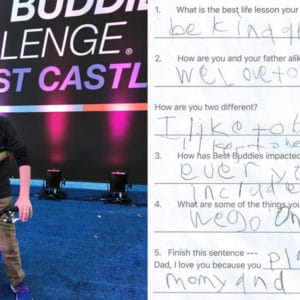 BUDDIE
LENGE®
ST CASTL
1. What is the best life lesson your
be kind
2. How are you and your father alik
we love to
How are you two different?
I like to
3. How has Best Buddies impacted
every
include
4. What are some of the things you
we go on
5. Finish this sentence ---
Dad, I love you because you
momy and